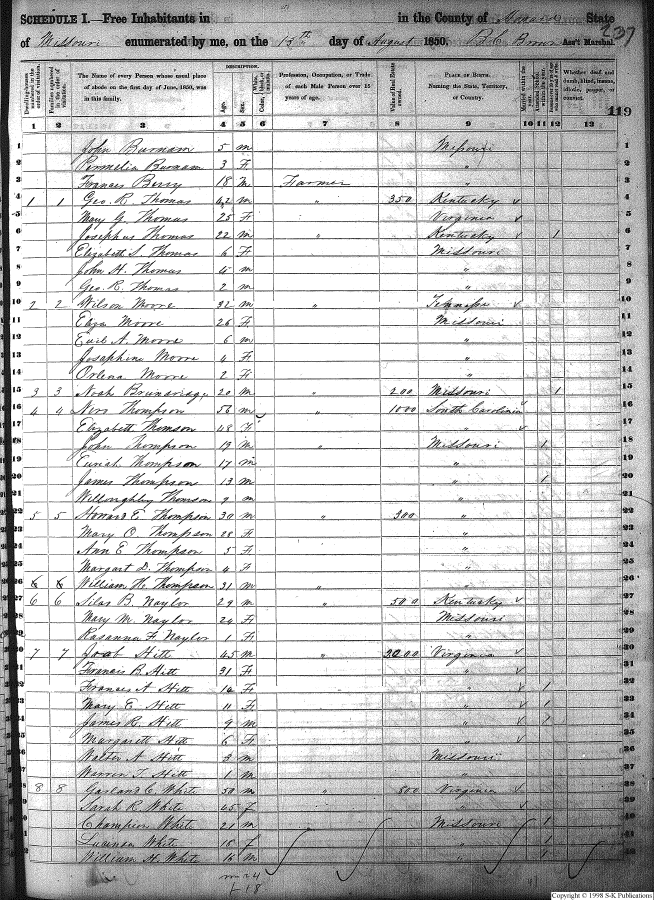 SCHEDULE I.—Free Inhabitants in in the County of State
of Missouri enumerated by me, on the 15th day of August 1850. Ass't Marshal. 237
Dwelling-houses numbered in the order of visitation. Families numbered in the order of visitation. The Name of every Person whose usual place of abode on the first day of June, 1850, was in this family. DESCRIPTION. Age. Sex. Color, White, black, or mulatto. Profession, Occupation, or Trade of each Male Person over 15 years of age. Value of Real Estate owned. PLACE OF BIRTH. Naming the State, Territory, or Country. Married within the year. Whether deaf and dumb, blind, insane, idiotic, pauper, or convict.
119
1 2 3 4 5 6 7 8 9 10 11 12 13
1 John Burnam 5 m Missouri 1
2 Permelia Burnam 3 F " 2
3 Frances Berry 18 m Farmer " 3
4 1 1 Geo. R. Thomas 42 m " 350 Kentucky ✓ 4
5 Mary G. Thomas 25 F Virginia ✓ 5
6 Josephus Thomas 22 m " Kentucky ✓ 1 6
7 Elizabeth S. Thomas 6 F Missouri 7
8 John H. Thomas 4 m " 8
9 Geo. R. Thomas 2 m " 9
10 2 2 Wilson Moore 32 m " ✓ 10
11 Eliza Moore 26 F Missouri 11
12 A. Moore 6 m " 12
13 Josephine Moore 4 F " 13
14 Orlena Moore 2 F " 14
15 3 3 Noah 20 m " 200 Missouri 1 15
16 4 4 Thompson 56 m " 1000 South Carolina ✓ 16
17 Elizabeth Thomson 48 F " ✓ 17
18 John Thompson 19 m " Missouri 1 18
19 Thompson 17 m " 19
20 James Thompson 13 m " 1 20
21 Willoughby Thomson 9 m " 21
22 5 5 Howard E Thompson 30 m " 300 " 22
23 Mary C Thompson 28 F " 23
24 Ann E Thompson 5 F " 24
25 Margart D. Thompson 4 F " 25
26 6 6 William H. Thompson 31 m " " 26
27 6 6 Silas B. Naylor 29 m " 500 Kentucky ✓ 27
28 Mary M. Naylor 24 F Missouri 28
29 Rosanna F. Naylor 1 F " 29
30 7 7 Joab Hitt 45 m " 3200 Virginia ✓ 30
31 Francis B. Hitt 31 F " ✓ 31
32 Frances A Hitt 14 F " ✓ 1 32
33 Mary E. Hitt 11 F " ✓ 1 33
34 James R. Hitt 9 m " ✓ 1 34
35 Margarett Hitt 6 F " ✓ 35
36 Walter A Hitt 3 m Missouri 36
37 Warren T. Hitt 1 m " 37
38 8 8 Garland C. White 50 m " 800 Virginia ✓ 38
39 Sarah R. White 45 f " ✓ 39
40 Champion White 21 m Missouri 1 40
41 White 18 f " 1 41
42 William H. White 16 m " 1 42
m 24
f 18
Copyright © 1998 S-K Publications